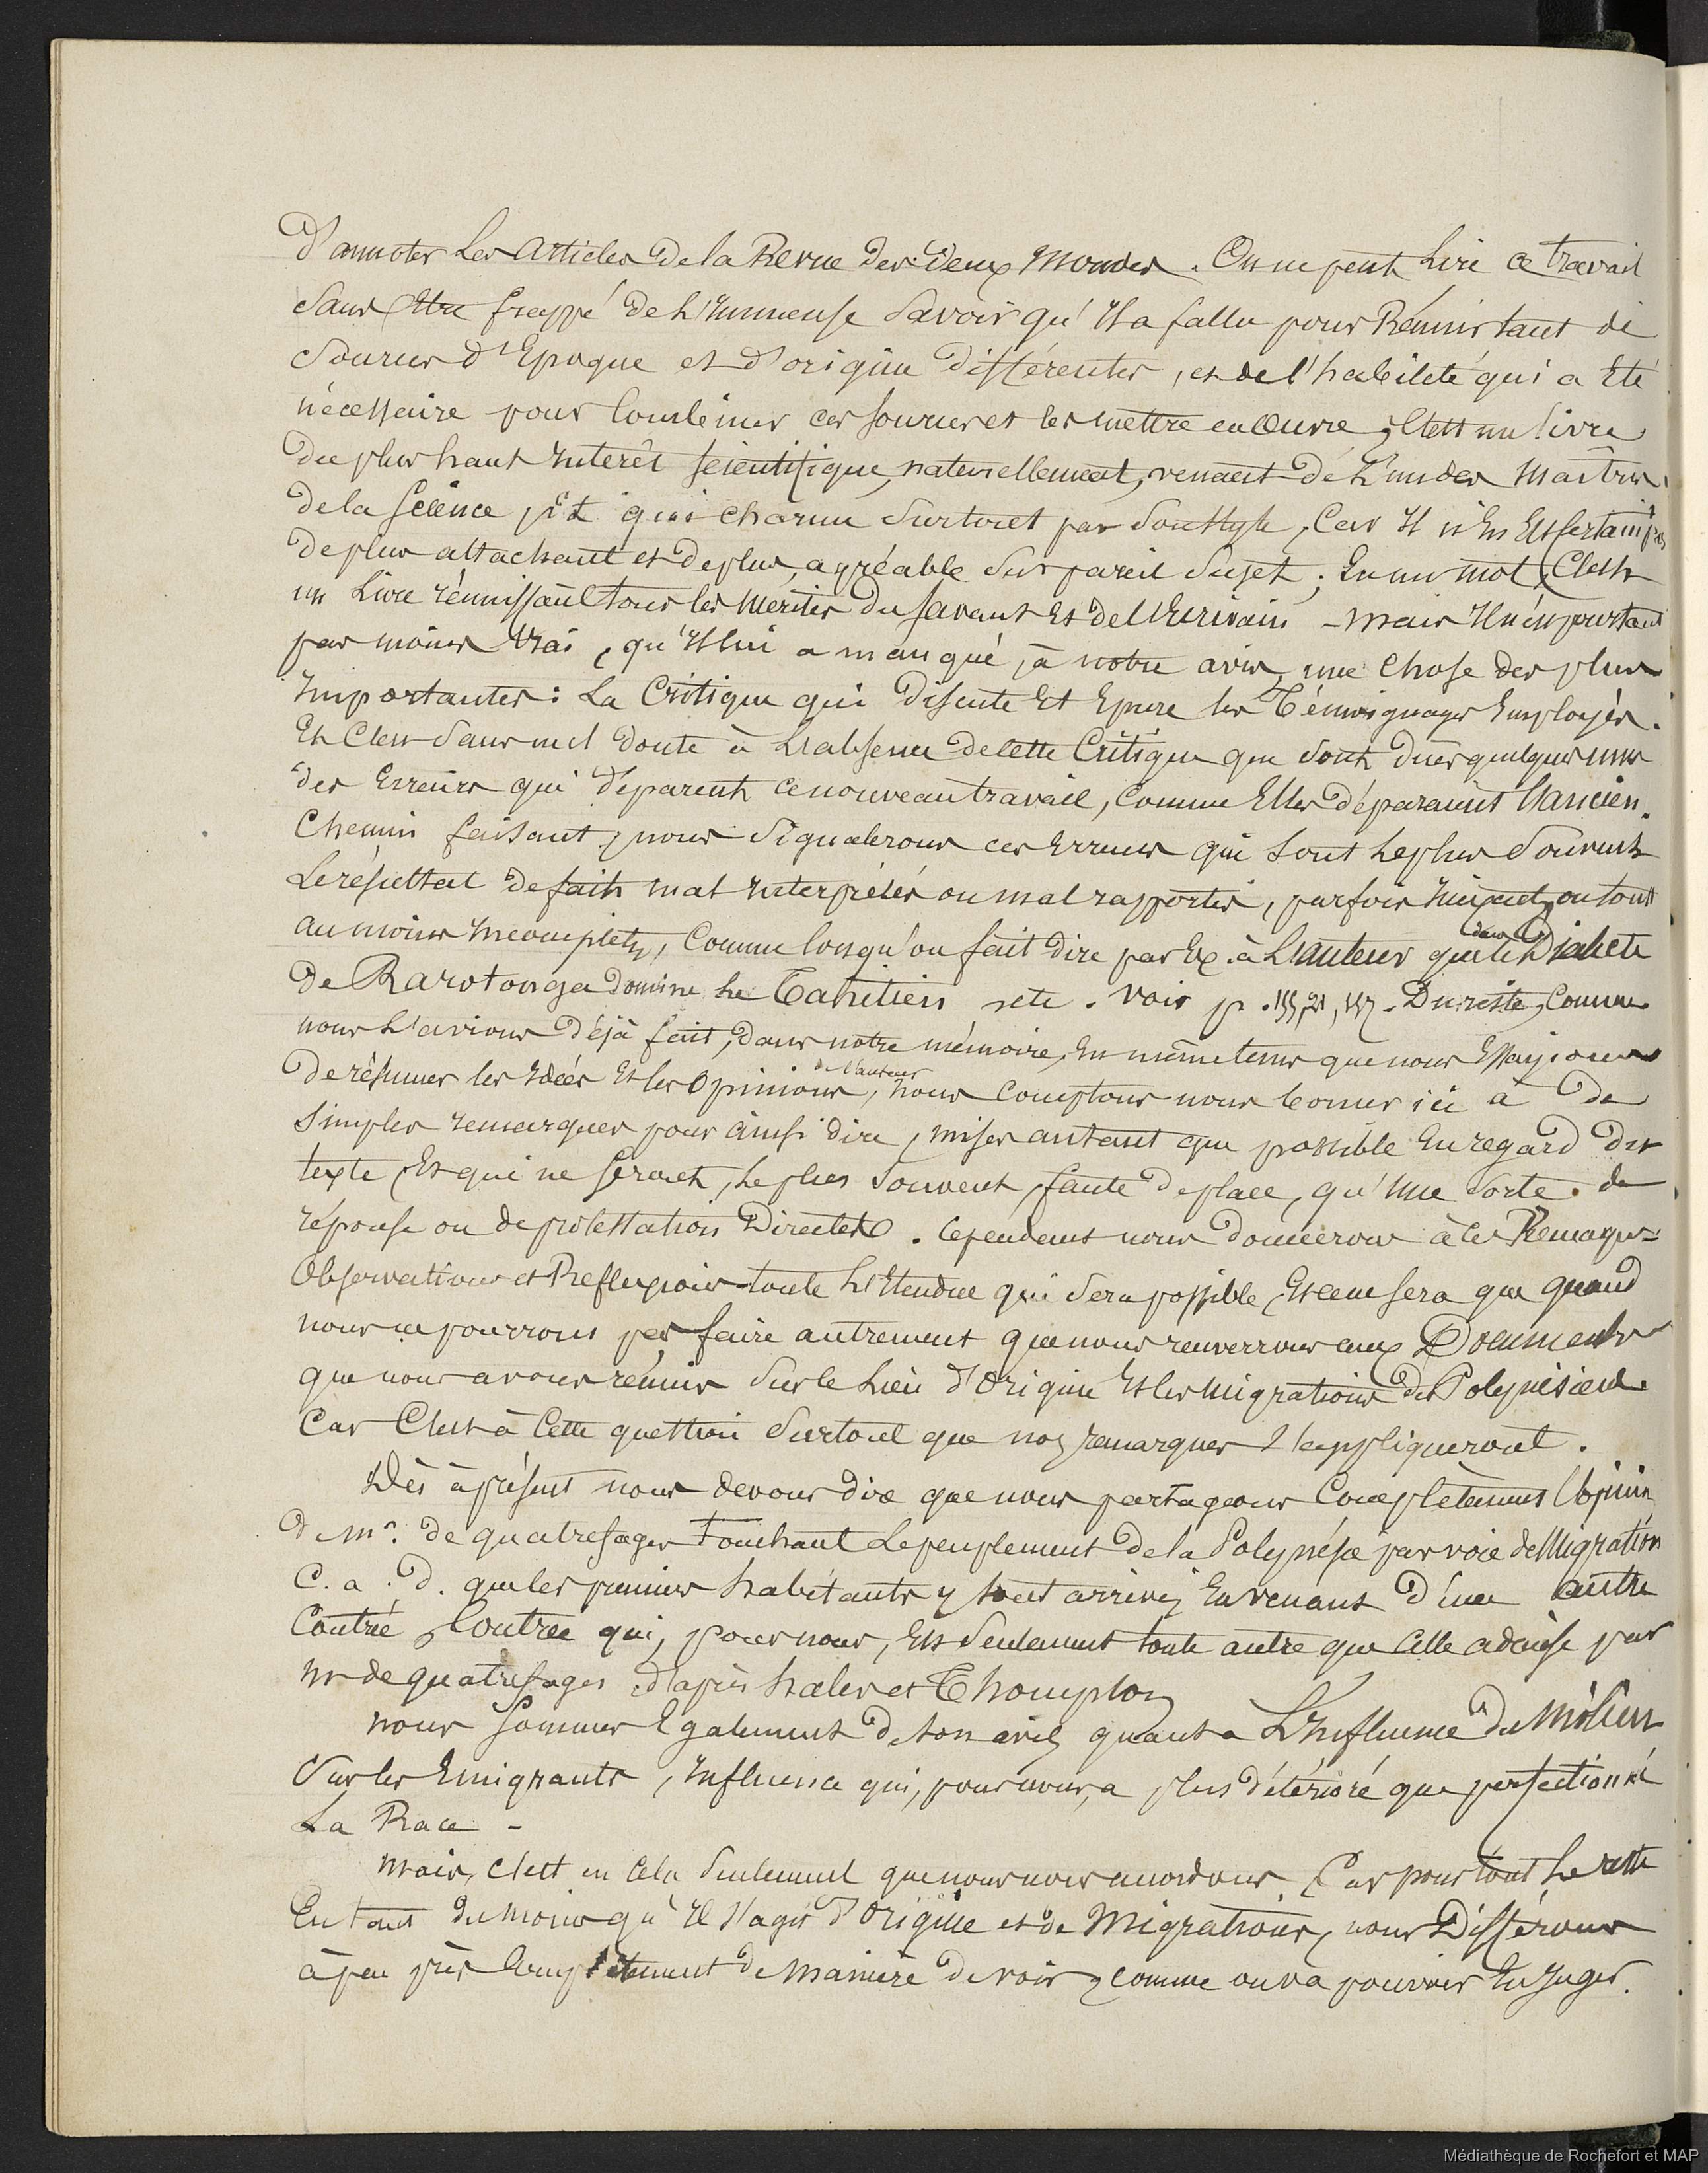 D'annoter Les Articles De la Revue Des Deux Mondes. On ne peut Lire ce travail
Sans Etre frappé De L'Immense Savoir qu'Il a fallu pour Réunir tant de
Sources d'Epoque et d'origine Différentes, et de l'habileté qui a Eté
nécessaire pour Combiner ces sources et les mettre en Œuvre; C'est un Livre
Du plus haut Intérêt scientifique, naturellement, venant De L'un des Maîtres
de la Science, Et qui charme Surtout par Son Style, Car Il n'En Est certain pas
De plus attachant et De plus agréable Sur pareil Sujet; En un mot, C'est
un Livre réunissant tous les Mérites Du Savant Et De L'Ecrivain – Mais Il n'en Est pourtant
pas moins Vrai, qu'Il lui a manqué, à notre avis, une Chose des plus
Importantes: La Critique qui Discute Et Epure les Témoignages Employés.
Et C'est Sans nul doute à L'absence De Cette Critique que Sont Dues quelques unes
des Erreurs qui Déparent ce nouveau travail, Comme Elles Déparaient L'ancien.
Chemin faisant, nous Signalerons ces Erreurs qui Sont Le plus Souvent
Le résultat de faits mal Interprétés ou mal rapportés, parfois Inexacts, ou tout
au moins Incomplets, Comme lorsqu'on fait Dire par Ex. à L'auteur que dans le Dialecte
De Rarotonga Domine le Tahitien, etc. Voir p. Du reste, Comme
nous L'avions Déjà fait, Dans notre mémoire, En même tems que nous Essayions
De résumer les Idées Et les Opinions de l'auteur, nous Comptons nous borner ici à De
Simples remarques pour ainsi dire, mises autant que possible En regard Du
texte, Et qui ne Seront, Le plus Souvent, faute De place, qu'Une Sorte de
réponse ou de protestation Directe. Cependant nous Donnerons à ces Remarques =
Observations et Réflexions toute L'Etendue qui Sera possible, Et ce ne sera que quand
nous ne pourrons pas faire autrement que nous renverrons aux Documents
que nous avons réunis Sur le Lieu D'Origine Et les Migrations Des Polynésiens.
Car C'est à Cette question Surtout que nos remarques S'appliqueront.
Dès à présent nous devons Dire que nous partageons Complètement L'opinion
De Mr. De quatrefages Touchant Le peuplement De la Polynésie par voie de Migration
C. a. D. que les premiers habitants y Sont arrivés En venant D'une autre
Contrée, Contrée qui, pour nous, Est Seulement toute autre que Celle admise par
Mr de quatrefages, D'après hales et Thompson
nous Sommes Egalement De son avis quant à L'Influence Du Milieu
Sur les Emigrants, Influence qui, pour nous, a plus Détérioré que perfectionné
La Race –
Mais, C'est en Cela Seulement que nous nous accordons, Car pour tout Le reste
En tant Du moins qu'Il S'agit D'Origine et de Migrations, nous Différons
à peu près Complètement De Manière De voir, comme on va pouvoir En Juger.
Médiathèque de Rochefort et MAP